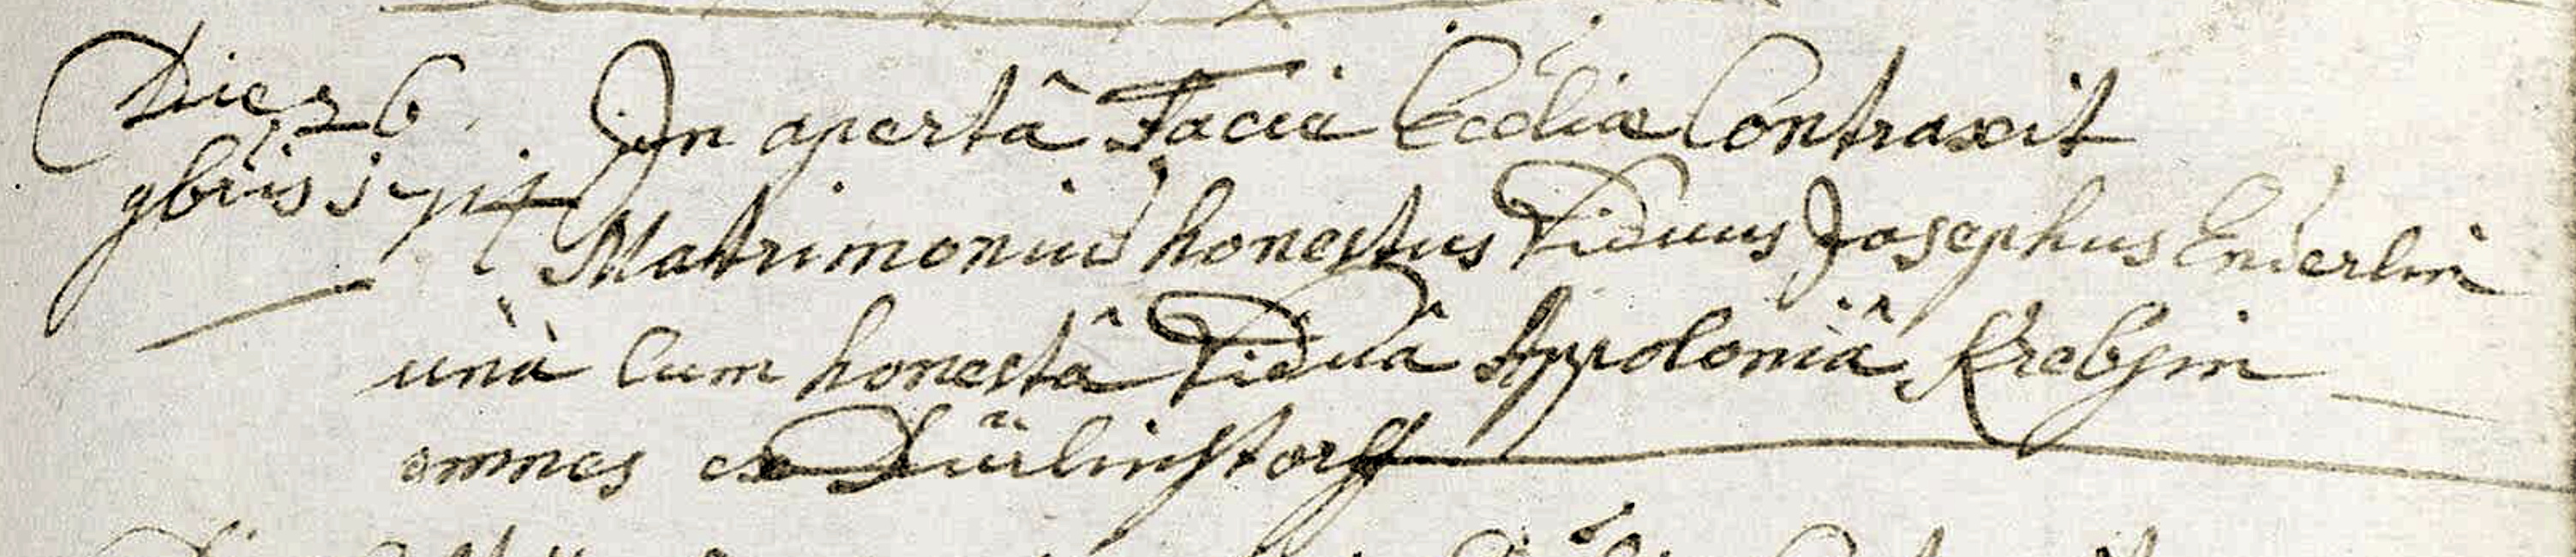 Die 26. In apertâ Facie Eccliæ Contraxit
9bris Matrimoniũ honestus Viduus Josephus Enderlin
unà Cum honestâ Viduâ Appoloniâ Krebsin
omnes ex Dürlinstorff